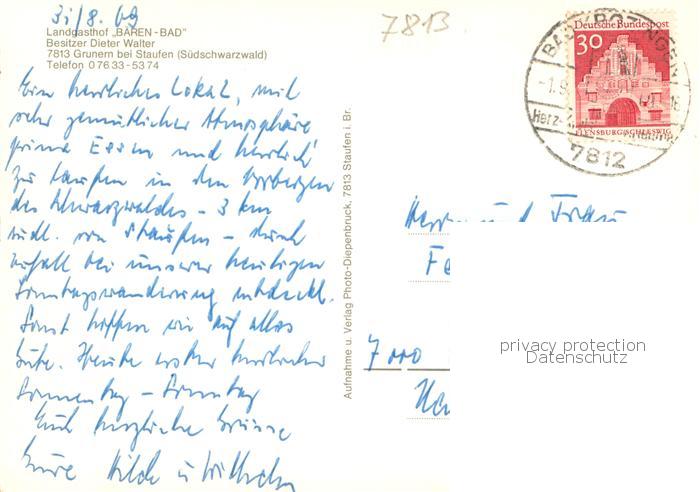 31/8. 69
Landgasthof „BÄREN-BAD"
Besitzer Dieter Walter
7813 Grunern bei Staufen (Südschwarzwald)
Telefon 0 76 33 - 53 74
7813
Ein herrliches Lokal, mit
sehr gemütlicher Atmosphäre
prima Essen und herrlich
zu laufen in den Vorbergen
des Schwarzwaldes - 3 km
südl. von Staufen - durch
Zufall bei unserer heutigen
Sonntagswanderung entdeckt.
Sonst hoffen wir auf alles
Gute. Heute erster herrlicher
Sonnentag - Sonntag
Euch herzliche Grüsse
Eure Hilde u Wilhelm
Aufnahme u. Verlag Photo-Diepenbruck, 7813 Staufen i. Br.
Deutsche Bundespost
30
FLENSBURG/SCHLESWIG
BAD KROZINGEN
-1.9.
18
Herz-
7812
Herrn und Frau
Fe
7000
privacy protection
Datenschutz